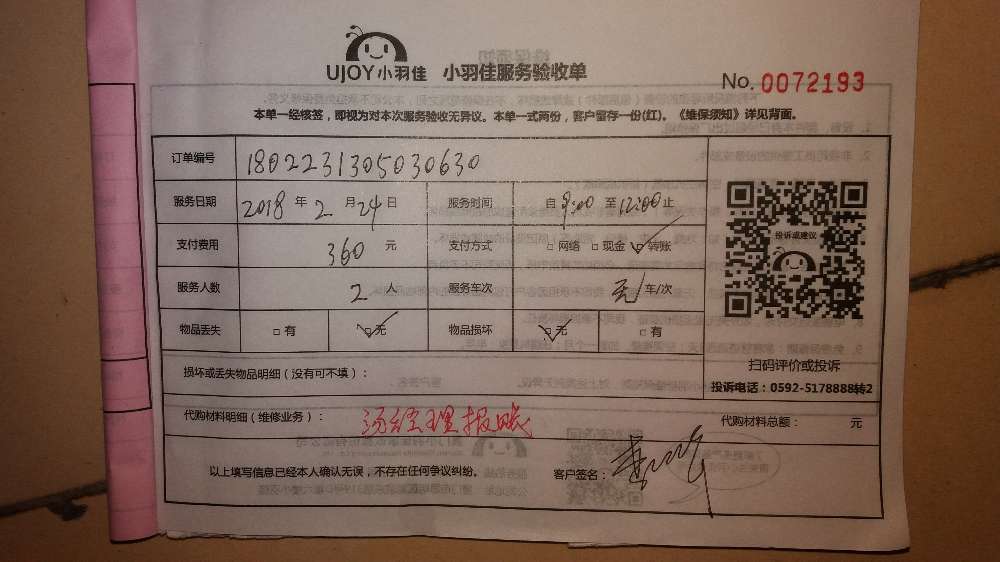 UJOY小羽佳 小羽佳服务验收单
No. 0072193
本单一经核签，即视为对本次服务验收无异议。本单一式两份，客户留存一份(红)。《维保须知》详见背面。
订单编号 1802231305030630
服务日期 2018 年 2 月 24 日 服务时间 自 9:00 至 12:00 止
支付费用 360 元 支付方式 □ 网络 □ 现金 ☑ 转账
服务人数 2 人 服务车次 无 车/次
物品丢失 □ 有 ☑ 无 物品损坏 ☑ 无 □ 有
投诉或建议
扫码评价或投诉
投诉电话：0592-5178888转2
损坏或丢失物品明细（没有可不填）：
代购材料明细（维修业务）： 汤经理报账 代购材料总额： 元
以上填写信息已经本人确认无误，不存在任何争议纠纷。 客户签名：